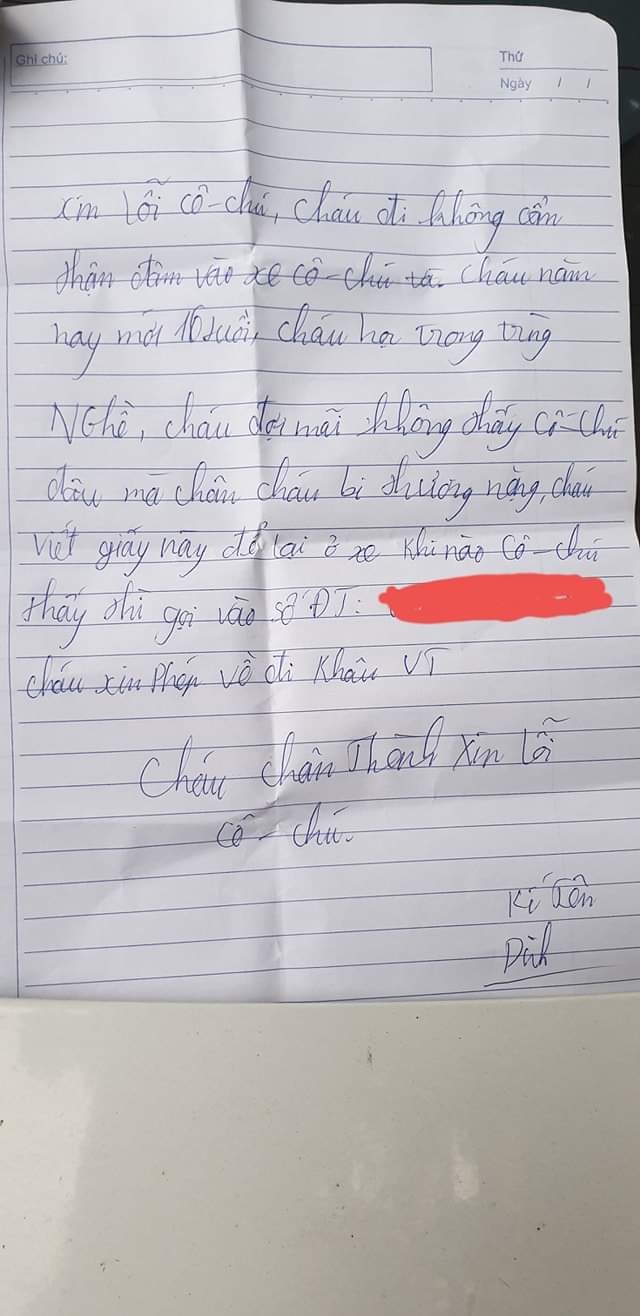 Ghi chú:
Thứ
Ngày / /
Xin lỗi cô-chú, cháu đi không cẩn
thận đâm vào xe cô-chú ạ. Cháu năm
nay mới 16 tuổi, cháu học trong trường
Nghề, cháu đợi mãi không thấy cô-chú
đâu mà chân cháu bị thương nặng, cháu
viết giấy này để lại ở xe khi nào cô-chú
thấy thì gọi vào số ĐT:
cháu xin phép về đi khâu VT
Cháu chân Thành xin lỗi
cô-chú.
Kí Tên